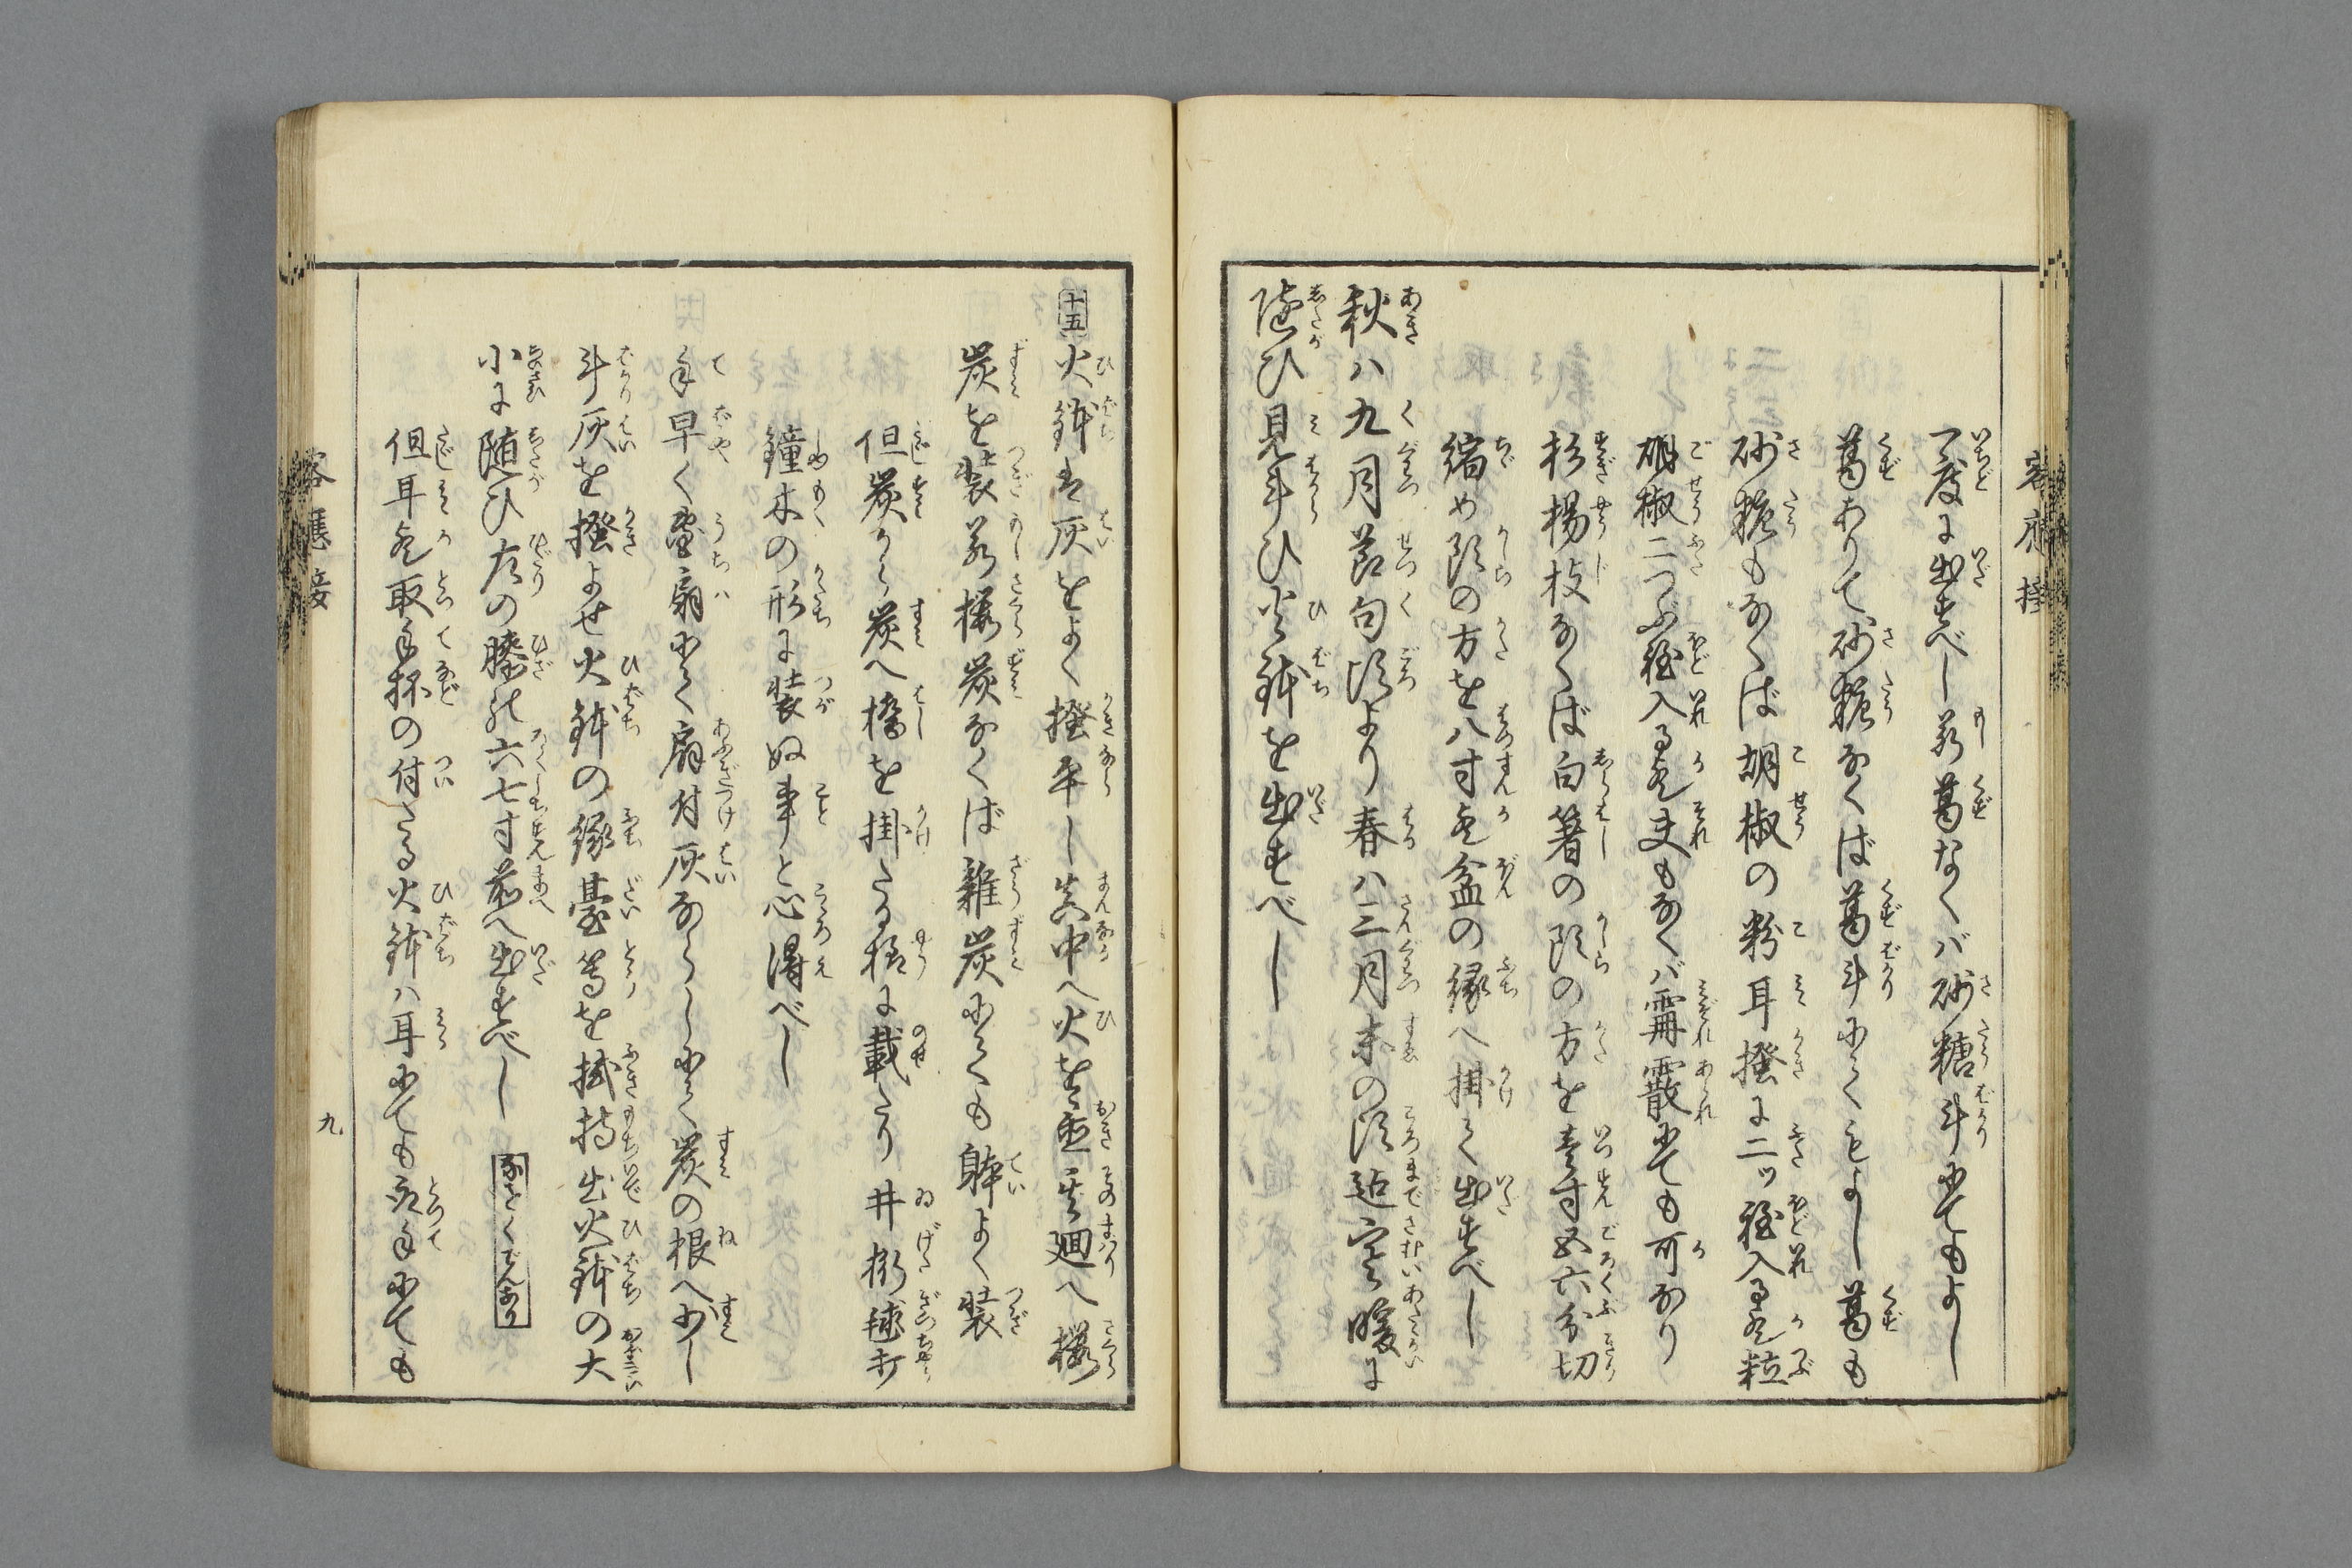 一度に出すべし若葛なくバ砂糖斗にてもよし
葛ありて砂糖なくば葛斗にてもよし葛も
砂糖もなくば胡椒の粉耳掻に二ツ程入る歟粒
胡椒二つぶ程入る歟夫もなくバ霙霰にても可なり
杉楊枝なくば白箸の頭の方を壱寸五六分切
縮め頭の方を八寸歟盆の縁へ掛て出すべし
秋ハ九月節句頃より春ハ三月末の頃迄寒暖に
随ひ見斗ひ火鉢を出すべし
客應接
十五 火鉢は灰をよく掻平し真中へ火を置其廻へ桜
炭を装若桜炭なくば雑炭にても躰よく装
但炭から炭へ橋を掛たる様に載たり井桁毬打
鐘木の形に装ぬ事と心得べし
手早く団扇にて扇付灰ならしにて炭の根へ少し
斗灰を掻よせ火鉢の縁臺等を拭持出火鉢の大
小に随ひ左の膝より六七寸前へ出すべし なをくでんあり
但耳歟取手杯の付たる火鉢ハ耳にても取手にても
客應接
九